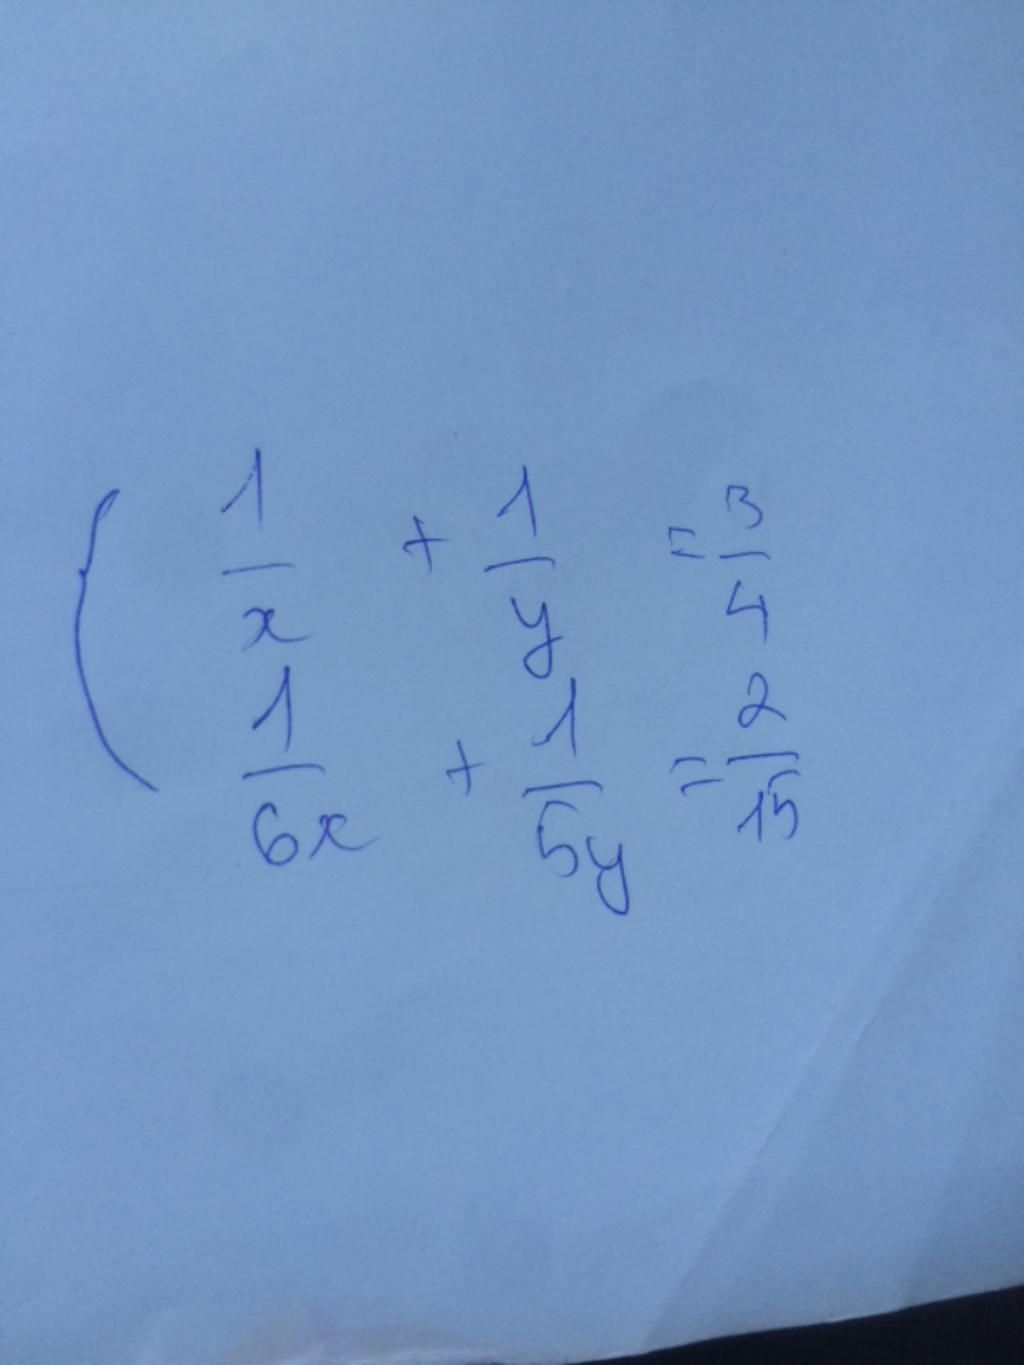 1/x + 1/y = 3/4
1/6x + 1/5y = 2/15